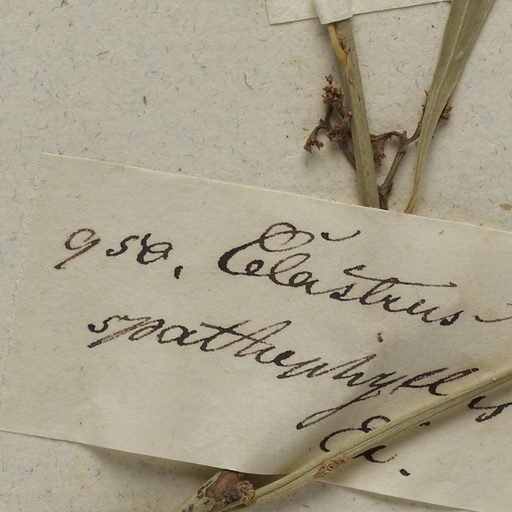 950. Celastrus
spathephyllus
E.